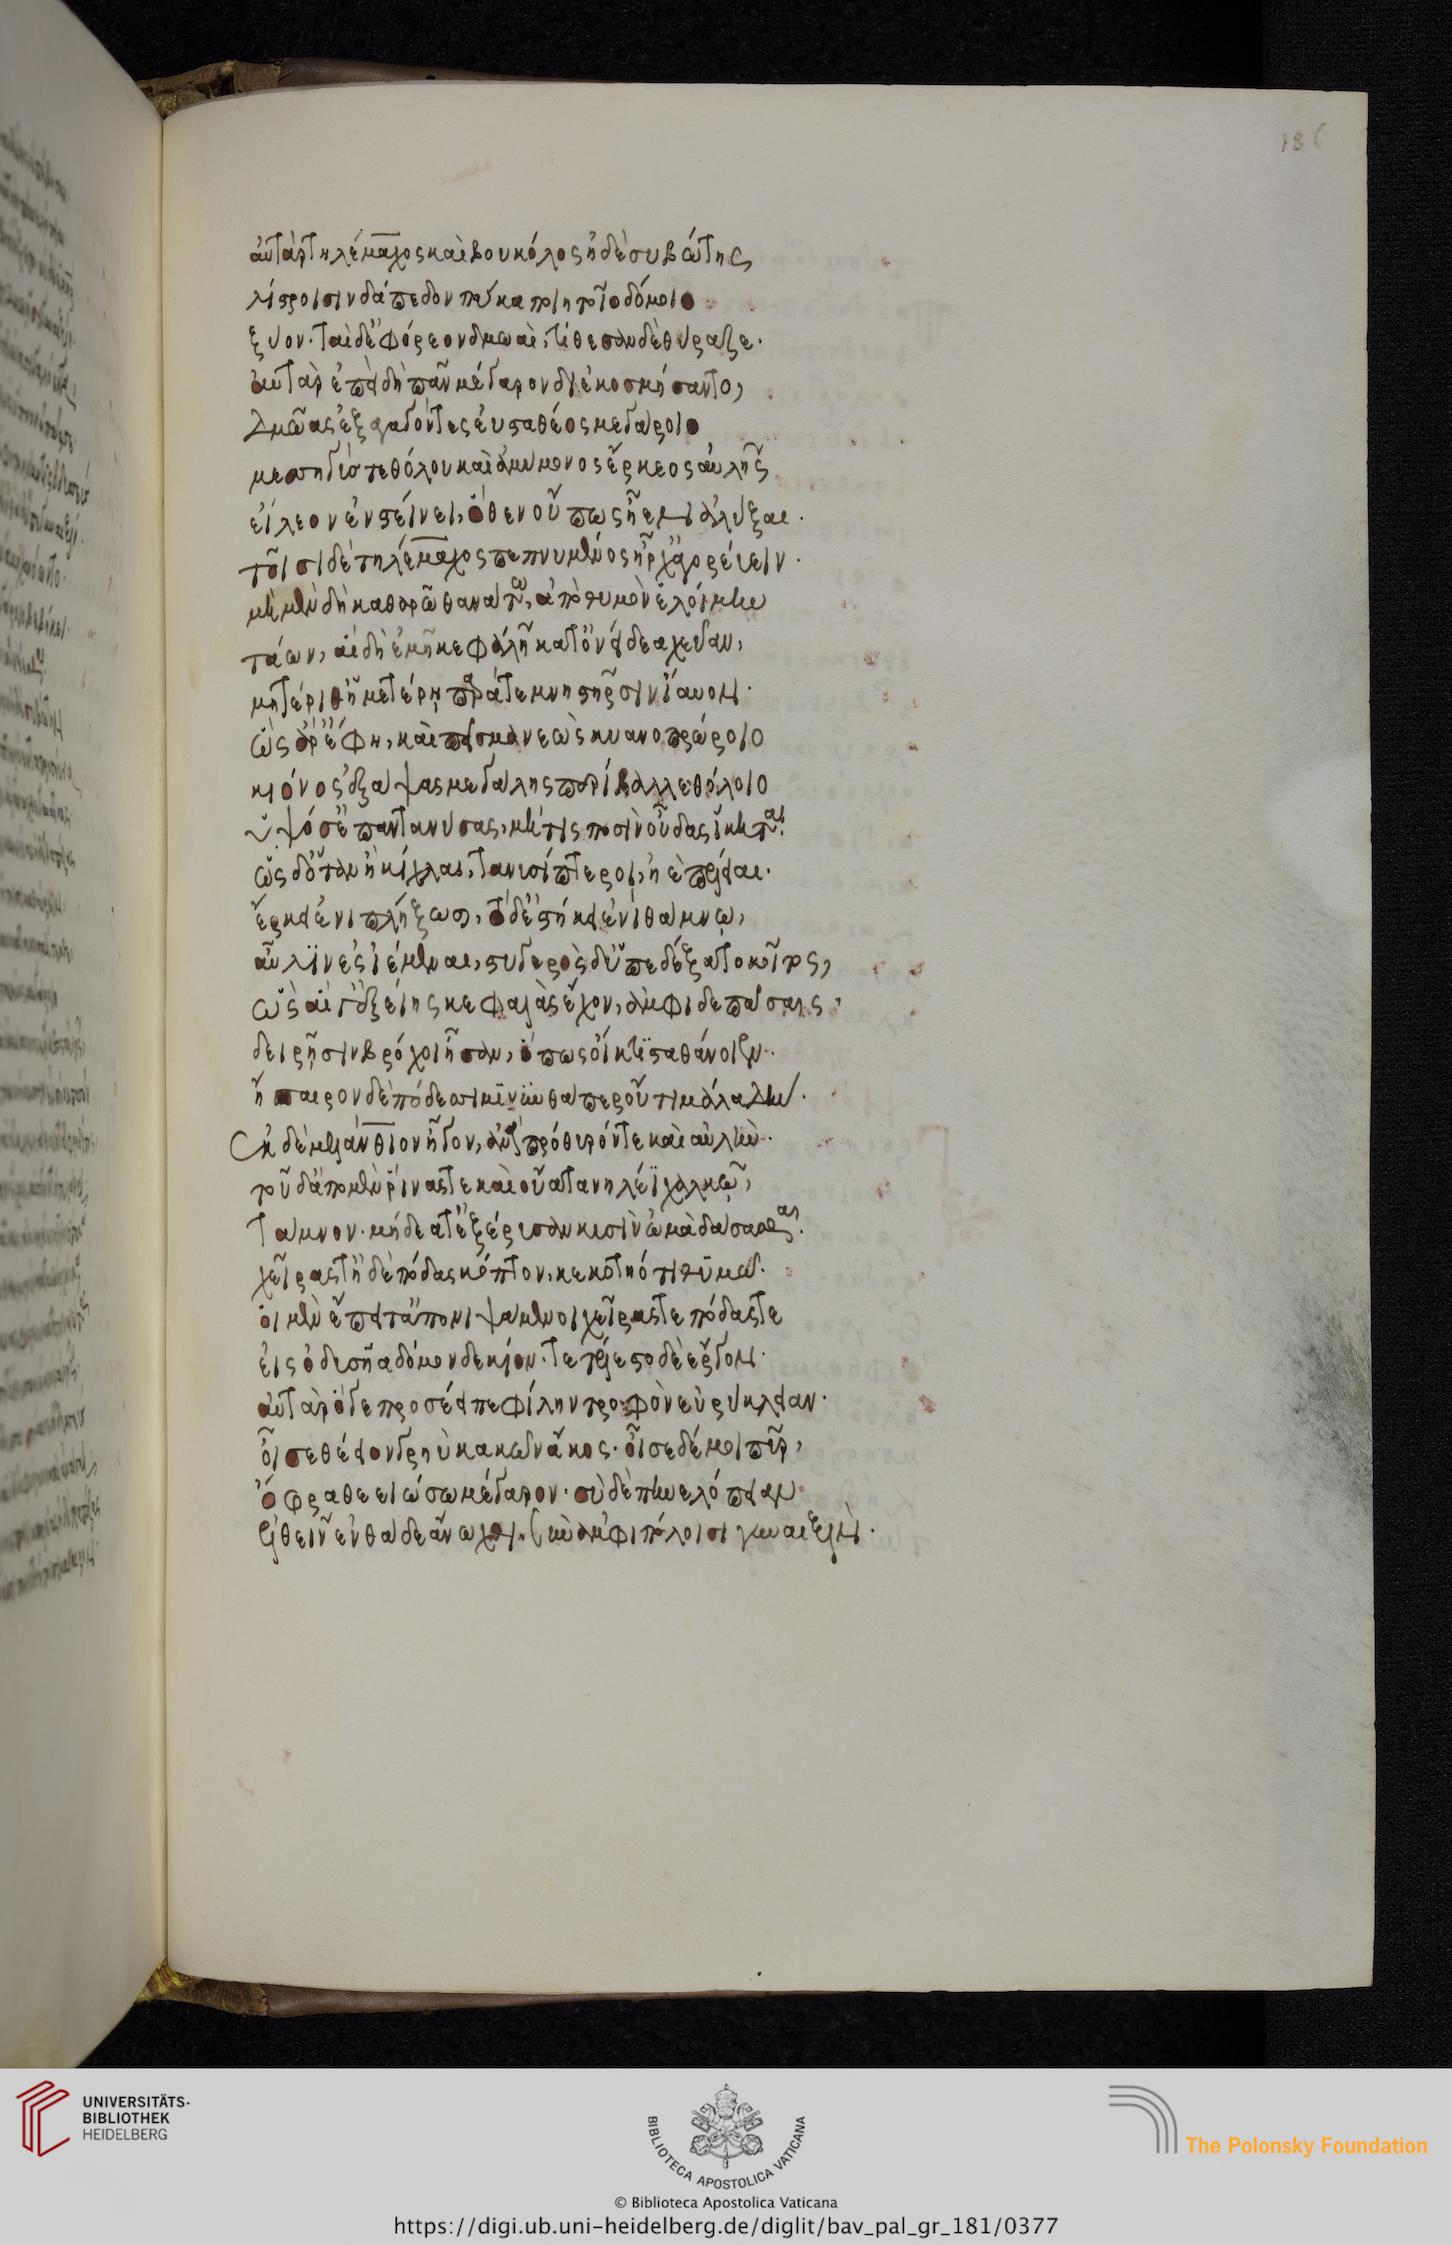 186
αὐτὰρ τηλέμαχος καὶ βουκόλος ἠδὲ συβώτης
λίστροισιν δάπεδον πύκα ποιητοῖο δόμοιο
ξύον· ταὶ δ' ἐφόρεον δμωαὶ, τίθεσαν δὲ θύραζε·
αὐτὰρ ἐπειδὴ πᾶν μέγαρον διεκοσμήσαντο,
δμωὰς ἐξαγαγόντες ἐυσταθέος μεγάροιο
μεσσηγύς τε θόλου καὶ ἀμύμονος ἕρκεος αὐλῆς
εἴλεον ἐν στείνει, ὅθεν οὔπως ἦεν ἀλύξαι·
τοῖσι δὲ τηλέμαχος πεπνυμένος ἦρχ' ἀγορεύειν·
μὴ μὲν δὴ καθαρῶ θανάτω, ἀπὸ θυμὸν ἑλοίμην
τάων, αἳ δὴ ἐμῇ κεφαλῇ κατ' ὀνείδεα χεῦαν,
μητέρι θ' ἡμετέρῃ, παρά τε μνηστῆρσιν ἴαυον·
ὣς ἄρ' ἔφη, καὶ πεῖσμα νεὼς κυανοπρώροιο
κίονος ἐξάψας μεγάλης περίβαλλε θόλοιο
ὑψόσ' ἐπαντανύσας, μή τις ποσὶν οὖδας ἵκηται·
ὡς δ' ὅταν ἢ κίχλαι, τανυσίπτεροι, ἠὲ πέλειαι·
ἕρκει ἐνιπλήξωσι, τό δ' ἑστήκει ἐνὶ θάμνῳ,
αὖλιν ἐσιέμεναι, στυγερὸς δ' ὑπεδέξατο κοῖτος,
ὣς αἵ γ' ἑξείης κεφαλὰς ἔχον, ἀμφὶ δὲ πάσαις,
δειρῇσιν βρόχοι ἦσαν, ὅπως οἴκτιστα θάνοιεν·
ἤσπαιρον δὲ πόδεσσι μίνυνθά περ οὔτι μάλα δήν·
ἐκ δὲ μελάνθιον ἦγον, ἀνὰ πρόθυρόν τε καὶ αὐλήν·
τοῦ δ' ἀπὸ μὲν ῥῖνάς τε καὶ οὔατα νηλέϊ χαλκῷ,
τάμνον· μήδεά τ' ἐξέρυσαν κυσὶν ὠμὰ δάσασθαι·
χεῖράς τ' ἠδὲ πόδας κόπτον, κεκοτηότι θυμῶ·
οἱ μὲν ἔπειτ' ἀπονιψάμενοι χεῖράς τε πόδας τε
εἰς ὀδυσῆα δόμον δε κίον· τετέλεστο δὲ ἔργον·
αὐτὰρ ὅγε προσέειπε φίλην τροφὸν εὐρύκλειαν·
οἶσε θέειον γρηῢ κακῶν ἄκος· οἶσε δέ μοι πῦρ,
ὄφρα θεειώσω μέγαρον· σὺ δὲ πηνελόπειαν
ἐλθεῖν ἐνθάδ' ἄνωχθι· σὺν ἀμφιπόλοισι γυναιξίν·
UNIVERSITÄTS-
BIBLIOTHEK
HEIDELBERG
BIBLIOTECA APOSTOLICA VATICANA
© Biblioteca Apostolica Vaticana
The Polonsky Foundation
https://digi.ub.uni-heidelberg.de/diglit/bav_pal_gr_181/0377